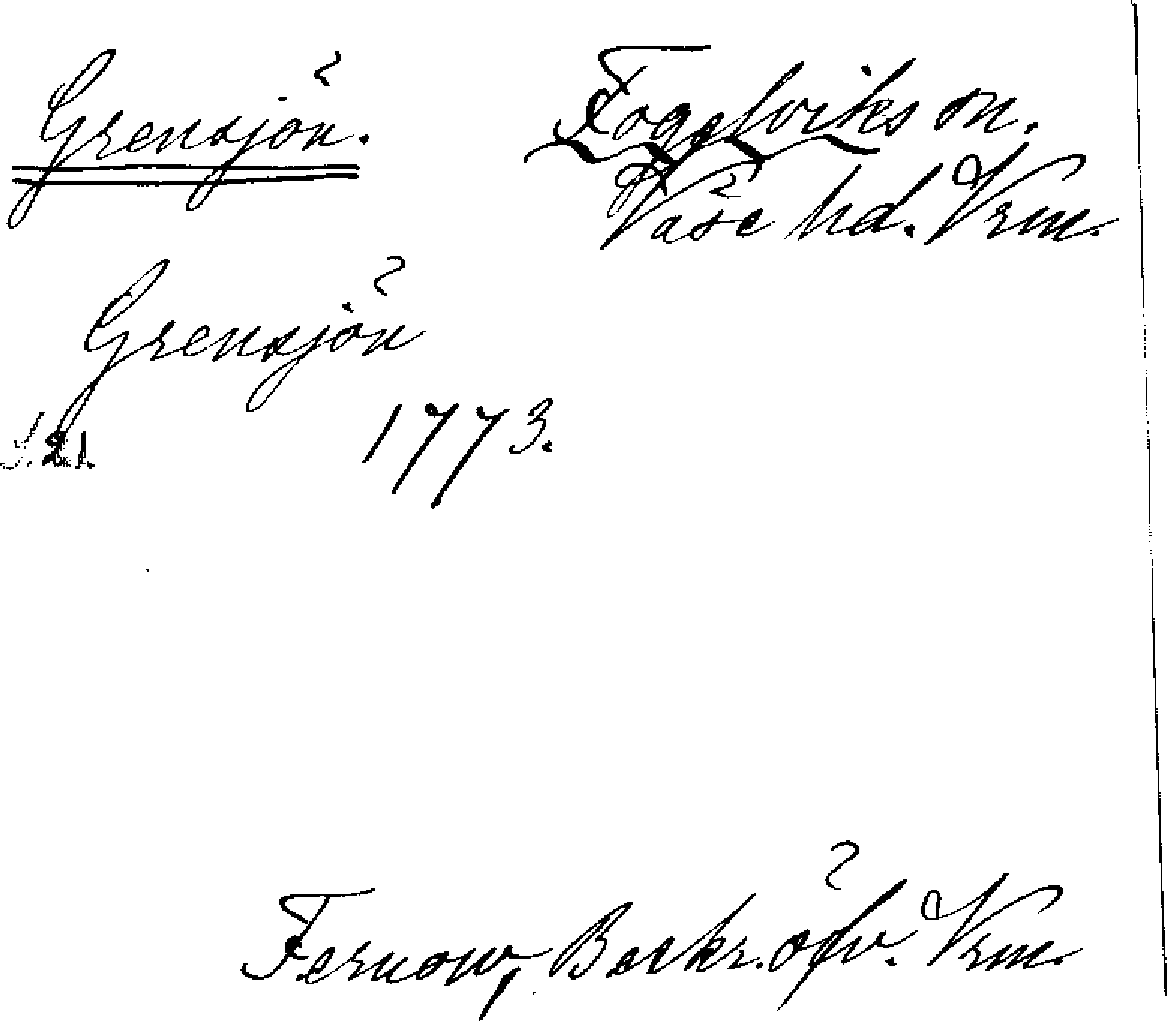 Grensjön.
Fogelviks sn.
Väse hd. Vrm.
Grensjön
S. 21. 1773.
Fernow, Beskr. öfv. Vrm.